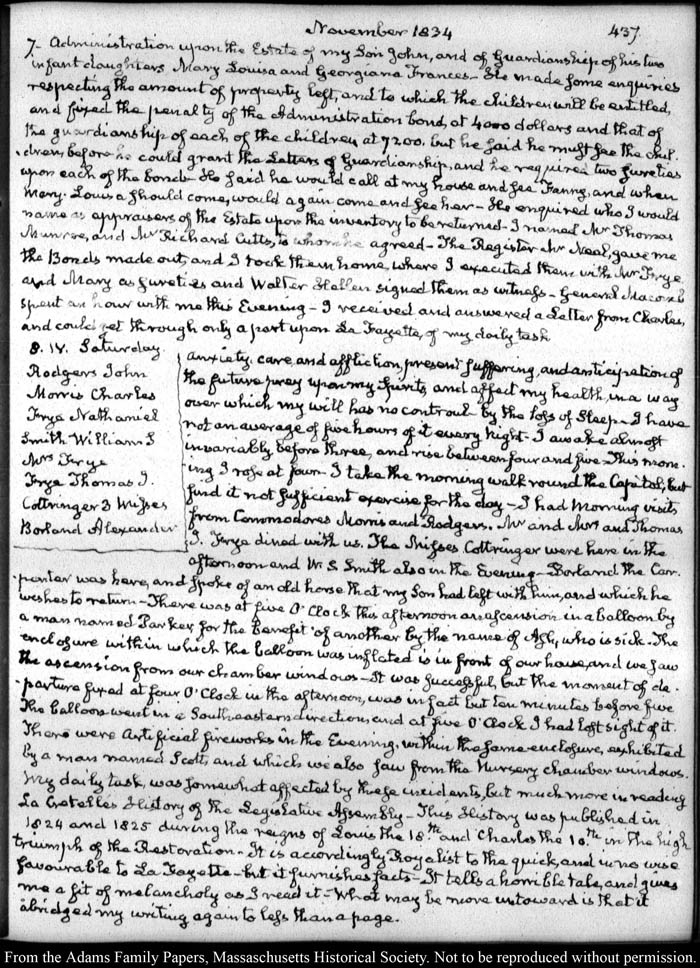 November 1834
437.
7- Administration upon the Estate of my Son John, and of Guardianship of his two
infant daughters Mary Louisa and Georgiana Frances- He made some enquiries
respecting the amount of property left, and to which the children will be entitled,
and fixed the penalty of the Administration bond, at 4000 dollars and that of
the guardianship of each of the children at 7200. but he said he must see the chil-
-dren, before he could grant the Letters of Guardianship, and he required two sureties
upon each of the bonds- He said he would call at my house and see Fanny, and when
Mary-Louisa should come, would again come and see her- He enquired who I would
name as appraisers of the Estate upon the inventory to be returned- I named Mr Thomas
Munroe, and Mr Richard Cutts, to whom he agreed- The Register Mr Neal, gave me
the Bonds made out, and I took them home, where I executed them with Mr Frye
and Mary as sureties and Walter Hellen signed them as witness- General Macomb
spent an hour with me this Evening- I received and answered a Letter from Charles,
and could get through only a part upon La Fayette, of my daily task
8. IV. Saturday.
Rodgers John
Morris Charles
Frye Nathaniel
Smith William S
Mrs Frye
Frye Thomas J.
Cottringer 3 Misses
Borland Alexander
Anxiety, care, and affliction, present suffering, and anticipation of
the future prey upon my Spirits, and affect my health, in a way
over which my will has no controul by the loss of Sleep- I have
not an average of five hours of it every night- I awake almost
invariably before three, and rise between four and five- This morn-
ing I rose at four- I take the morning walk round the Capitol; but
find it not sufficient exercise for the day- I had morning visits
from Commodores Morris and Rodgers. Mr and Mrs and Thomas
J. Frye dined with us. The Misses Cottringer were here in the
afternoon and W. S Smith also in the Evening- Borland the Car-
-penter was here, and spoke of an old horse that my Son had left with him, and which he
wishes to return- There was at five O'Clock this afternoon an ascension in a balloon by
a man named Parker for the benefit of another by the name of Ash, who is sick. The
enclosure within which the balloon was inflated is in front of our house, and we saw
the ascension from our chamber windows- It was successful, but the moment of de-
-parture fixed at four O'Clock in the afternoon, was in fact but ten minutes before five
The balloon went in a Southeastern direction, and at five O'Clock I had lost sight of it.
There were artificial fireworks in the Evening, within the same enclosure, exhibited
by a man named Scott, and which we also saw from the Nursery chamber windows.
My daily task, was somewhat affected by these incidents, but much more in reading
La Cretelle's History of the Legislative Assembly- This History was published in
1824 and 1825 during the reigns of Louis the 18.th and Charles the 10.th in the high
triumph of the Restoration- It is accordingly Royalist to the quick, and in no wise
favourable to La Fayette- but it furnishes facts- It tells a horrible tale, and gives
me a fit of melancholy as I read it- What may be more untoward is that it
abridged my writing again to less than a page.
From the Adams Family Papers, Massachusetts Historical Society. Not to be reproduced without permission.